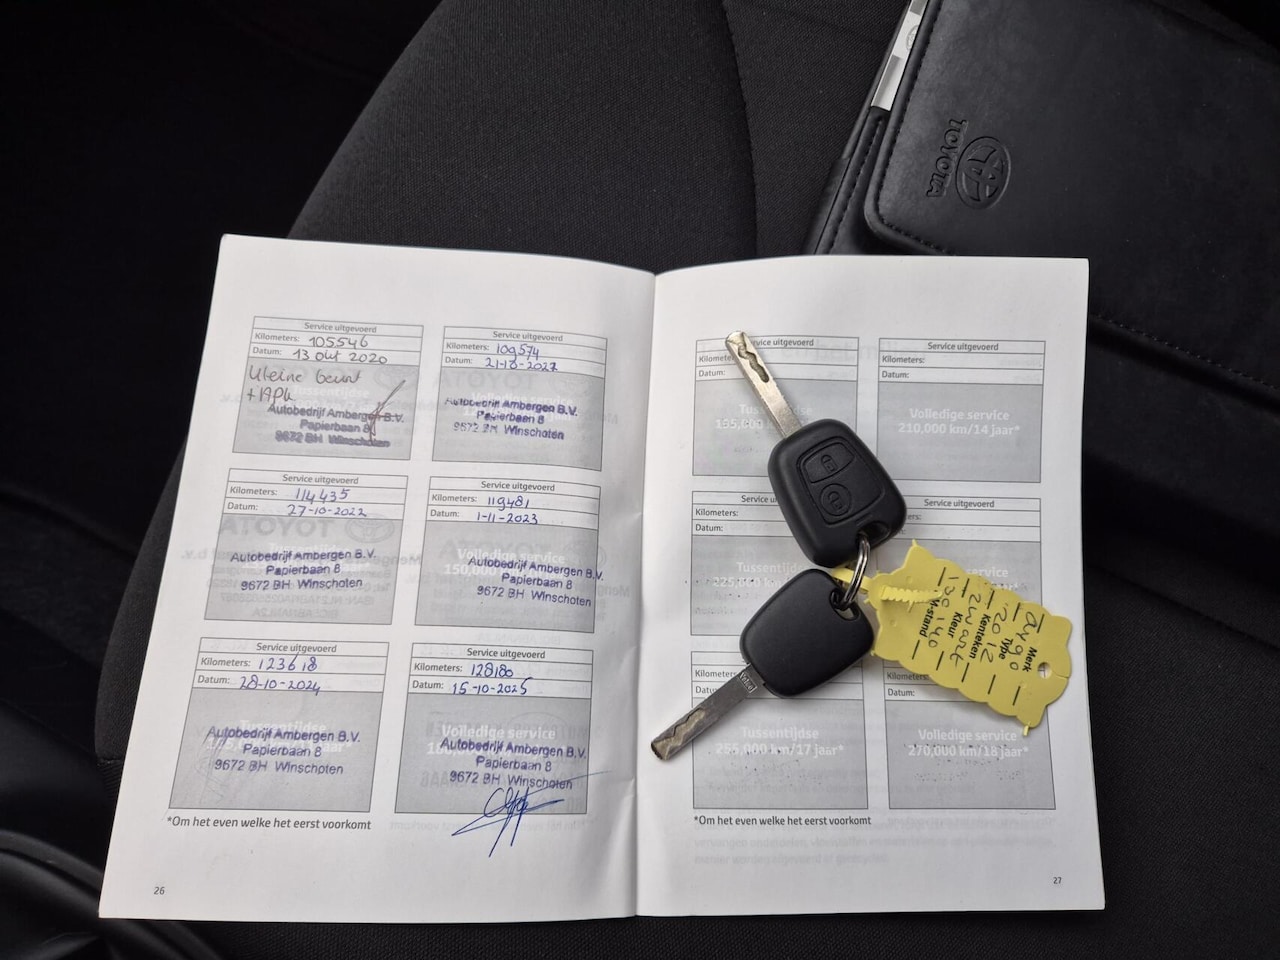 TOYOTA
Service uitgevoerd
Kilometers: 105546
Datum: 13 okt 2020
Kleine beurt
+ APK
Autobedrijf Ambergen B.V.
Papierbaan 8
9672 BH Winschoten
Service uitgevoerd
Kilometers: 109574
Datum:
Autobedrijf Ambergen B.V.
Papierbaan 8
9672 BH Winschoten
Service uitgevoerd
Kilometers: 114435
Datum: 27-10-2022
Autobedrijf Ambergen B.V.
Papierbaan 8
9672 BH Winschoten
Service uitgevoerd
Kilometers: 119481
Datum: 1-11-2023
Volledige service
150,000
Autobedrijf Ambergen B.V.
Papierbaan 8
9672 BH Winschoten
Service uitgevoerd
Kilometers: 123618
Datum: 28-10-2024
Tussentijdse
Autobedrijf Ambergen B.V.
Papierbaan 8
9672 BH Winschoten
Service uitgevoerd
Kilometers: 128180
Datum: 15-10-2025
Volledige service
Autobedrijf Ambergen B.V.
Papierbaan 8
9672 BH Winschoten
*Om het even welke het eerst voorkomt
26
uitgevoerd
Datum:
Service uitgevoerd
Kilometers:
Datum:
Volledige service
210,000 km/14 jaar*
Kilometers:
Datum:
Tussentijdse
Service uitgevoerd
service
Datum:
Tussentijdse
255,000 km/17 jaar*
Volledige service
270,000 km/18 jaar*
*Om het even welke het eerst voorkomt
27
Merk
Aygo
Type
2012
Kenteken
Kleur
zwart
130140